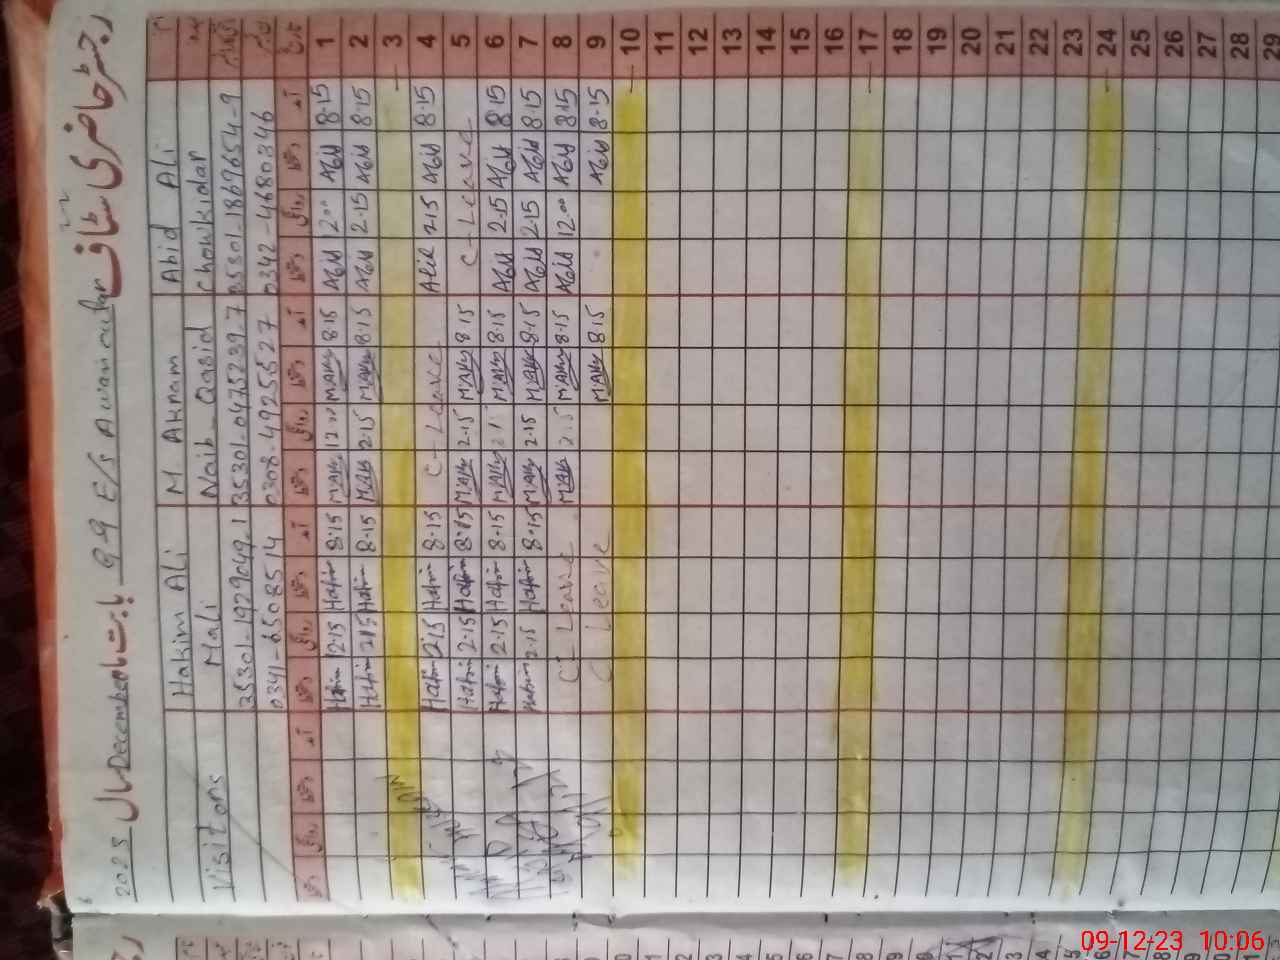 رجسٹر حاضری سٹاف G G E/S Awan بابت ماہ December سال 2023
نام Abid Ali M Akram Hakim Ali
عہدہ Chowkidar Naib-Qasid Mali Visitors
35301-1869654-9 35301-0475239-7 35301-1929049-1
0342-4680346 0308-4925527 0341-6508514
تاریخ آمد دستخط روانگی دستخط آمد دستخط روانگی دستخط آمد دستخط روانگی دستخط آمد دستخط روانگی دستخط
1 8:15 Abid 2:00 Abid 8:15 MAkr 12:00 MAkr 8:15 Hakim 2:15 Hakim
2 8:15 Abid 2-15 Abid 8:15 MAkr 2:15 MAkr 8:15 Hakim 2:15 Hakim
3
4 8:15 Abid 2:15 Abid C-Leave 8:15 Hakim 2:15 Hakim
5 C-Leave 8:15 MAkr 2:15 MAkr 8:15 Hakim 2:15 Hakim
6 8:15 Abid 2:15 Abid 8:15 MAkr MAkr 8:15 Hakim 2:15 Hakim
7 8:15 Abid 2:15 Abid 8:15 MAkr 2:15 MAkr 8:15 Hakim 2:15 Hakim
8 8:15 Abid 12:00 Abid 8:15 MAkr MAkr C-Leave
9 8:15 Abid 8:15 MAkr C Leave
10
11
12
13
14
15
16
17
18
19
20
21
22
23
24
25
26
27
28
29
09-12-23 10:06